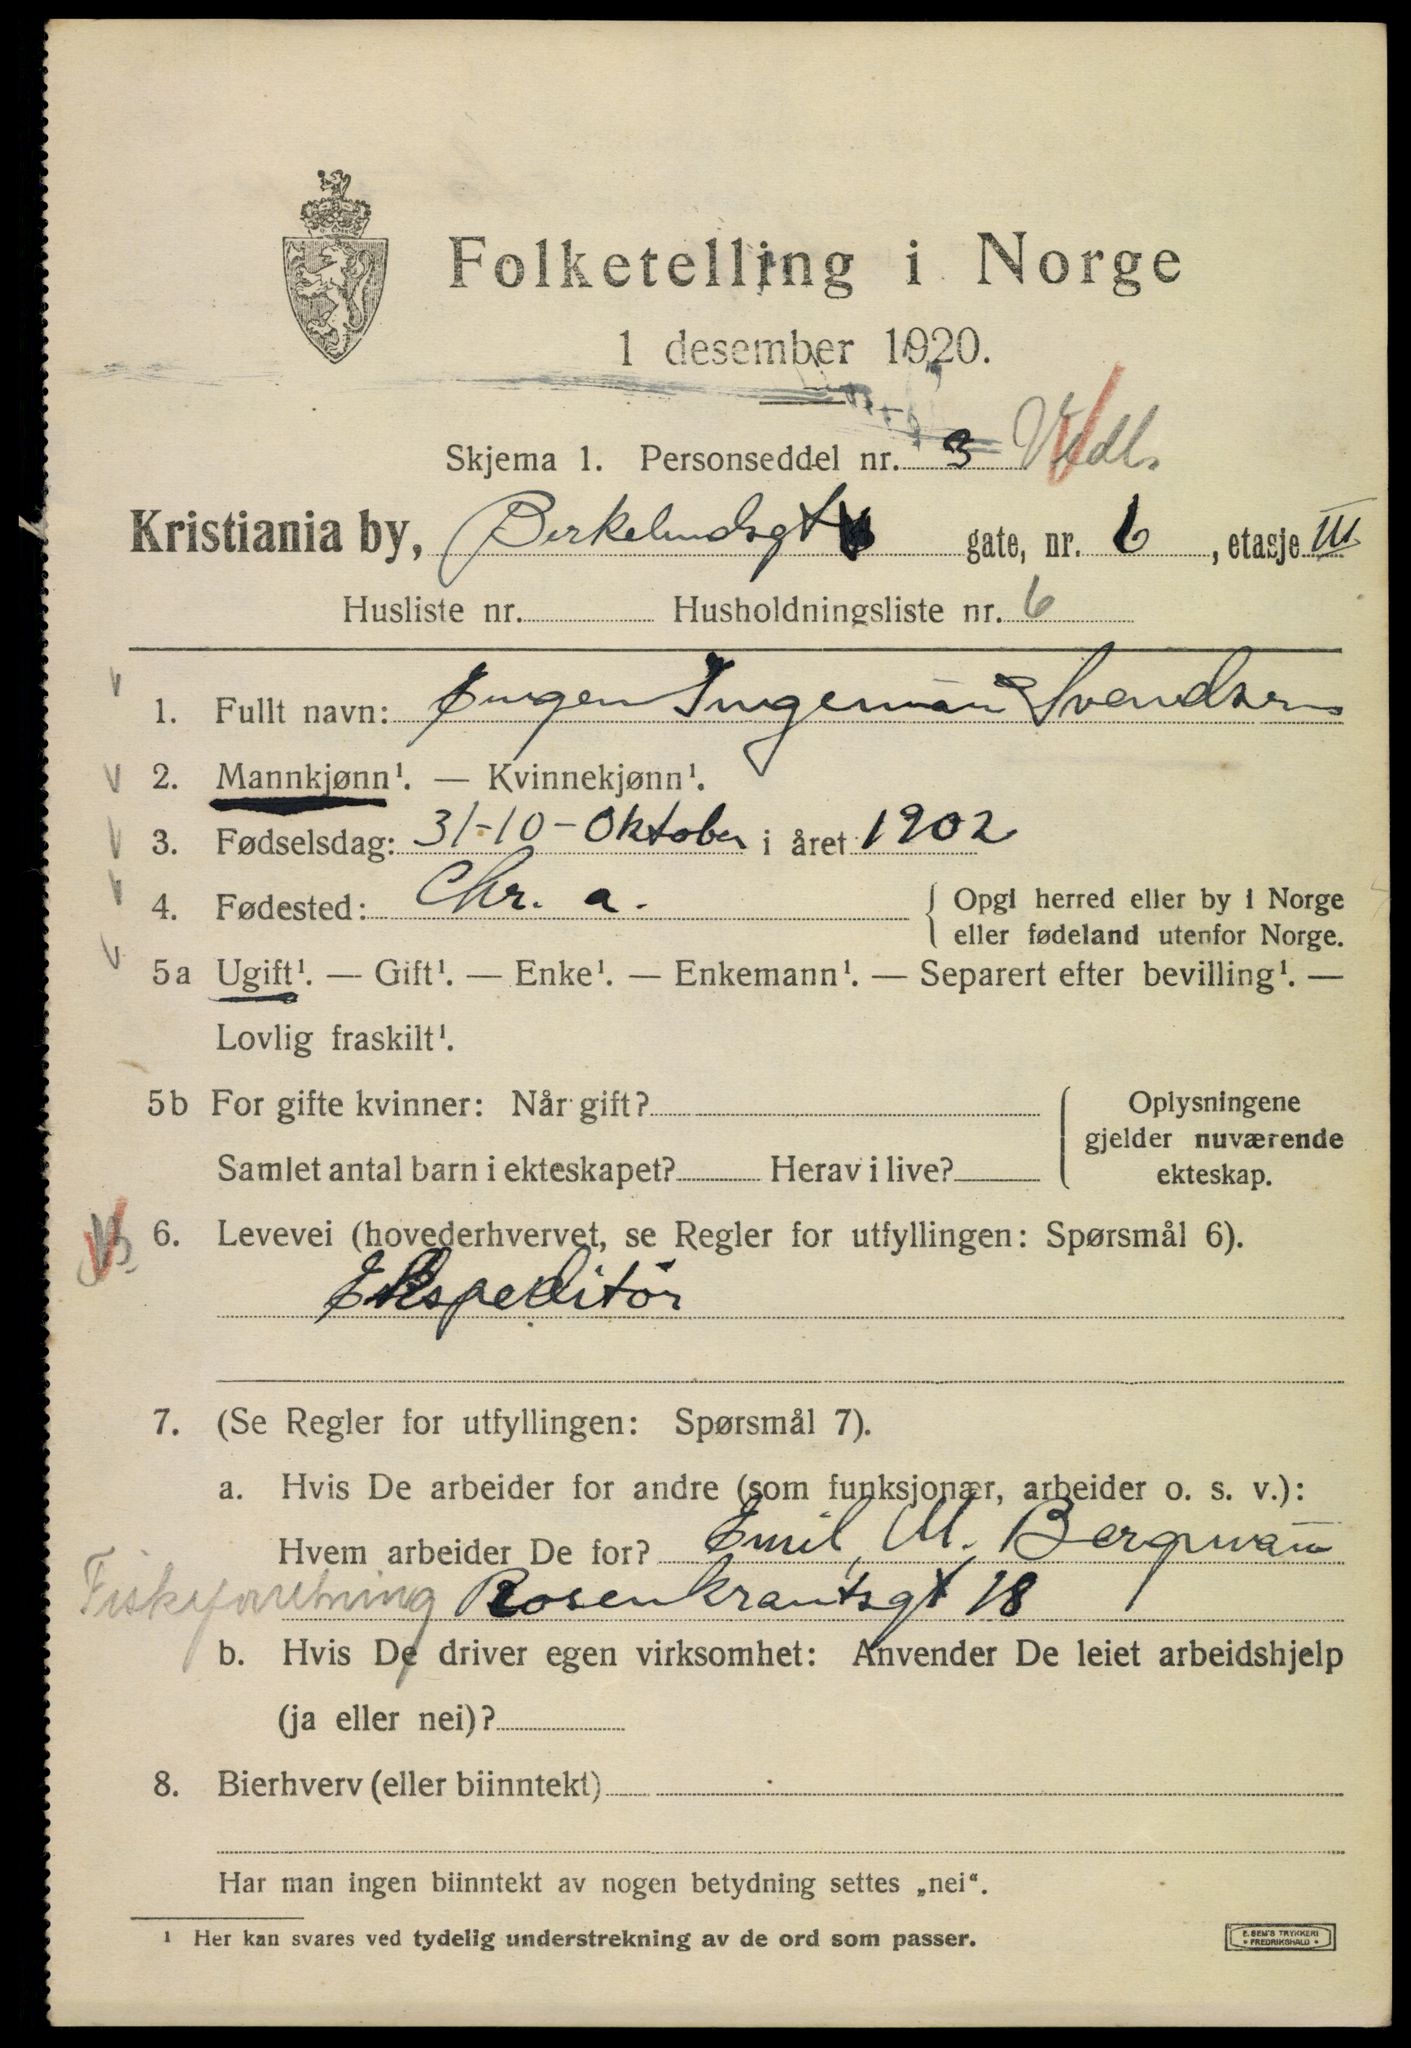 Folketelling i Norge
1 desember 1920.
Skjema 1. Personseddel nr. 3 Vedl.
Kristiania by, Birkelundsgt gate, nr. 6, etasje III
Husliste nr. Husholdningsliste nr. 6
1. Fullt navn: Eugen Ingeman Svendsen
2. Mannkjønn¹. — Kvinnekjønn¹.
3. Fødselsdag: 31-10-Oktober i året 1902
4. Fødested: Chr. a. Opgi herred eller by i Norge
eller fødeland utenfor Norge.
5a Ugift¹. — Gift¹. — Enke¹. — Enkemann¹. — Separert efter bevilling¹. —
Lovlig fraskilt¹.
5b For gifte kvinner: Når gift? Oplysningene
gjelder nuværende
Samlet antal barn i ekteskapet? Herav i live? ekteskap.
6. Levevei (hovederhvervet, se Regler for utfyllingen: Spørsmål 6).
Ekspeditør
7. (Se Regler for utfyllingen: Spørsmål 7).
a. Hvis De arbeider for andre (som funksjonær, arbeider o. s. v.):
Hvem arbeider De for? Emil M. Bergman
Fiskeforretning Rosenkrantsgt 18
b. Hvis De driver egen virksomhet: Anvender De leiet arbeidshjelp
(ja eller nei)?
8. Bierhverv (eller biinntekt)
Har man ingen biinntekt av nogen betydning settes „nei“.
¹ Her kan svares ved tydelig understrekning av de ord som passer.
E. SEM'S TRYKKERI
• FREDRIKSHALD •